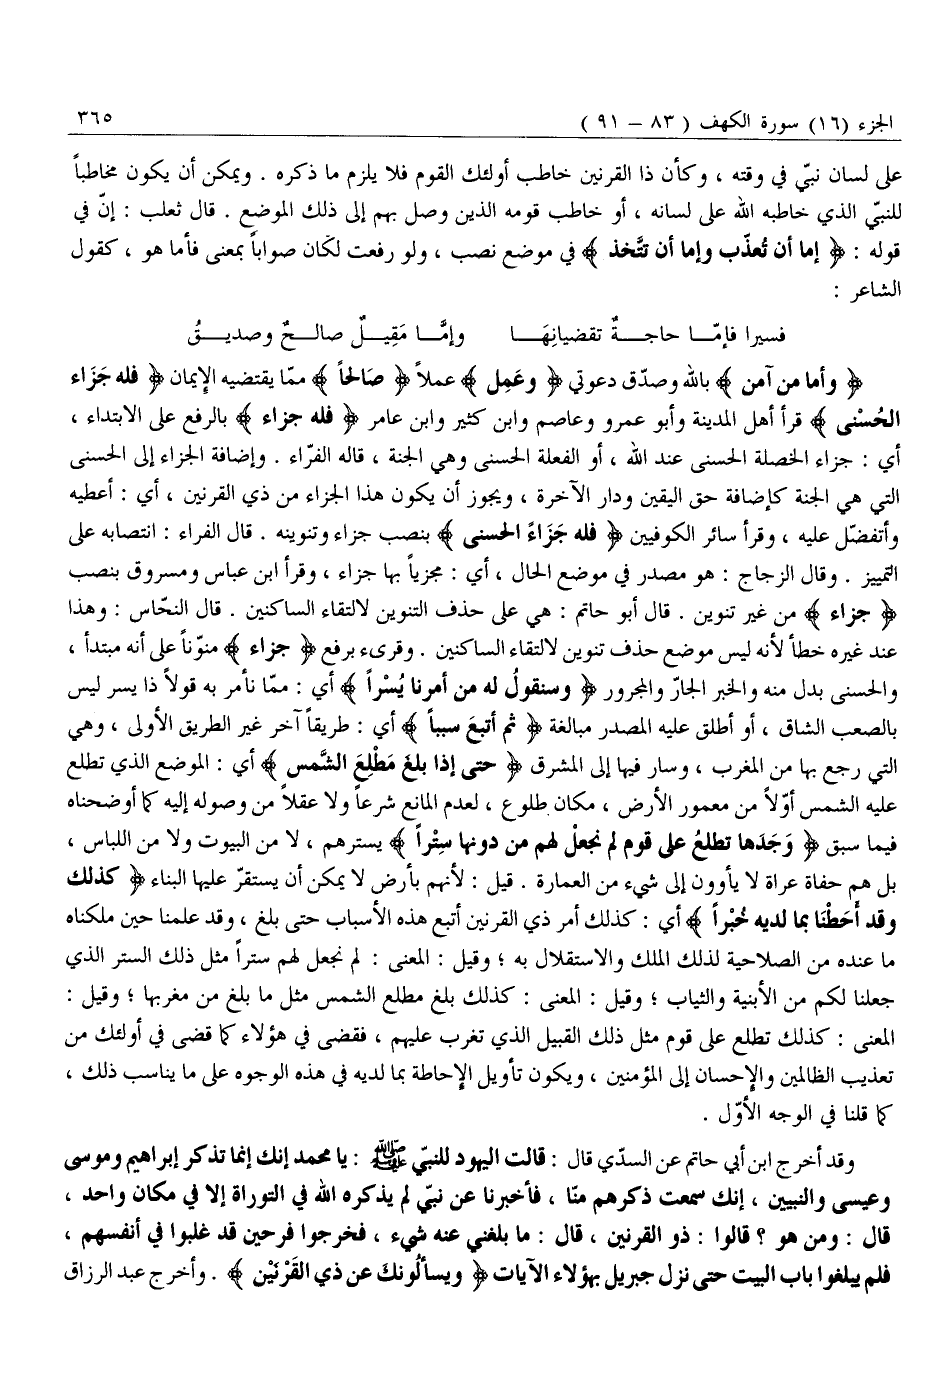 الجزء (١٦) سورة الكهف ( ٨٣ – ٩١ )
٣٦٥
على لسان نبيّ في وقته ، وكأن ذا القرنين خاطب أولئك القوم فلا يلزم ما ذكره . ويمكن أن يكون مخاطباً
للنبيّ الذي خاطبه الله على لسانه ، أو خاطب قومه الذين وصل بهم إلى ذلك الموضع . قال ثعلب : إنّ في
قوله : ﴿ إما أن تُعذّب وإما أن تتَّخذ ﴾ في موضع نصب ، ولو رفعت لكان صواباً بمعنى فأما هو ، كقول
الشاعر :
فسيرا فإمّا حاجةٌ تقضيانِهَا وإمَّا مَقِيلٌ صالحٌ وصديقُ
﴿ وأما من آمن ﴾ بالله وصدّق دعوتي ﴿ وعَمِل ﴾ عملاً ﴿ صَالحاً ﴾ ممّا يقتضيه الإيمان ﴿ فله جَزَاء
الحُسْنى ﴾ قرأ أهل المدينة وأبو عمرو وعاصم وابن كثير وابن عامر ﴿ فله جزاء ﴾ بالرفع على الابتداء ،
أي : جزاء الخصلة الحسنى عند الله ، أو الفعلة الحسنى وهي الجنة ، قاله الفرّاء . وإضافة الجزاء إلى الحسنى
التي هي الجنة كإضافة حق اليقين ودار الآخرة ، ويجوز أن يكون هذا الجزاء من ذي القرنين ، أي : أعطيه
وأتفضّل عليه ، وقرأ سائر الكوفيين ﴿ فله جَزَاءً الحسنى ﴾ بنصب جزاء وتنوينه . قال الفراء : انتصابه على
التمييز . وقال الزجاج : هو مصدر في موضع الحال ، أي : مجزياً بها جزاء ، وقرأ ابن عباس ومسروق بنصب
﴿ جزاء ﴾ من غير تنوين . قال أبو حاتم : هي على حذف التنوين لالتقاء الساكنين . قال النحّاس : وهذا
عند غيره خطأ لأنه ليس موضع حذف تنوين لالتقاء الساكنين . وقرىء برفع ﴿ جزاء ﴾ منوّناً على أنه مبتدأ ،
والحسنى بدل منه والخبر الجارّ والمجرور ﴿ وسنقولُ له من أمرنا يُسْراً ﴾ أي : ممّا نأمر به قولاً ذا يسر ليس
بالصعب الشاق ، أو أطلق عليه المصدر مبالغة ﴿ ثم أتبعَ سبباً ﴾ أي : طريقاً آخر غير الطريق الأولى ، وهي
التي رجع بها من المغرب ، وسار فيها إلى المشرق ﴿ حتى إذا بلغَ مَطْلِعَ الشَّمس ﴾ أي : الموضع الذي تطلع
عليه الشمس أوّلاً من معمور الأرض ، مكان طلوع ، لعدم المانع شرعاً ولا عقلاً من وصوله إليه كما أوضحناه
فيما سبق ﴿ وَجَدَها تطلعُ على قوم لم نجعلْ لهم من دونها سِتْراً ﴾ يسترهم ، لا من البيوت ولا من اللباس ،
بل هم حفاة عراة لا يأوون إلى شيء من العمارة . قيل : لأنهم بأرض لا يمكن أن يستقرّ عليها البناء ﴿ كذلك
وقد أَحَطْنَا بما لديه خُبْراً ﴾ أي : كذلك أمر ذي القرنين أتبع هذه الأسباب حتى بلغ ، وقد علمنا حين ملكناه
ما عنده من الصلاحية لذلك الملك والاستقلال به ؛ وقيل : المعنى : لم نجعل لهم ستراً مثل ذلك الستر الذي
جعلنا لكم من الأبنية والثياب ؛ وقيل : المعنى : كذلك بلغ مطلع الشمس مثل ما بلغ من مغربها ؛ وقيل :
المعنى : كذلك تطلع على قوم مثل ذلك القبيل الذي تغرب عليهم ، فقضى في هؤلاء كما قضى في أولئك من
تعذيب الظالمين والإحسان إلى المؤمنين ، ويكون تأويل الإحاطة بما لديه في هذه الوجوه على ما يناسب ذلك ،
كما قلنا في الوجه الأوّل .
وقد أخرج ابن أبي حاتم عن السدّي قال : قالت اليهود للنبيّ ﷺ : يا محمد إنك إنما تذكر إبراهيم وموسى
وعيسى والنبيين ، إنك سمعت ذكرهم منّا ، فأخبرنا عن نبيّ لم يذكره الله في التوراة إلا في مكان واحد ،
قال : ومن هو ؟ قالوا : ذو القرنين ، قال : ما بلغني عنه شيء ، فخرجوا فرحين قد غلبوا في أنفسهم ،
فلم يبلغوا باب البيت حتى نزل جبريل بهؤلاء الآيات ﴿ ويسألُونكَ عن ذي القَرْنَيْن ﴾ . وأخرج عبد الرزاق